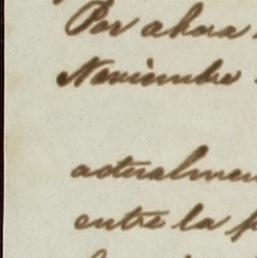 Por ahora
Noviembre
actualmen
entre la p